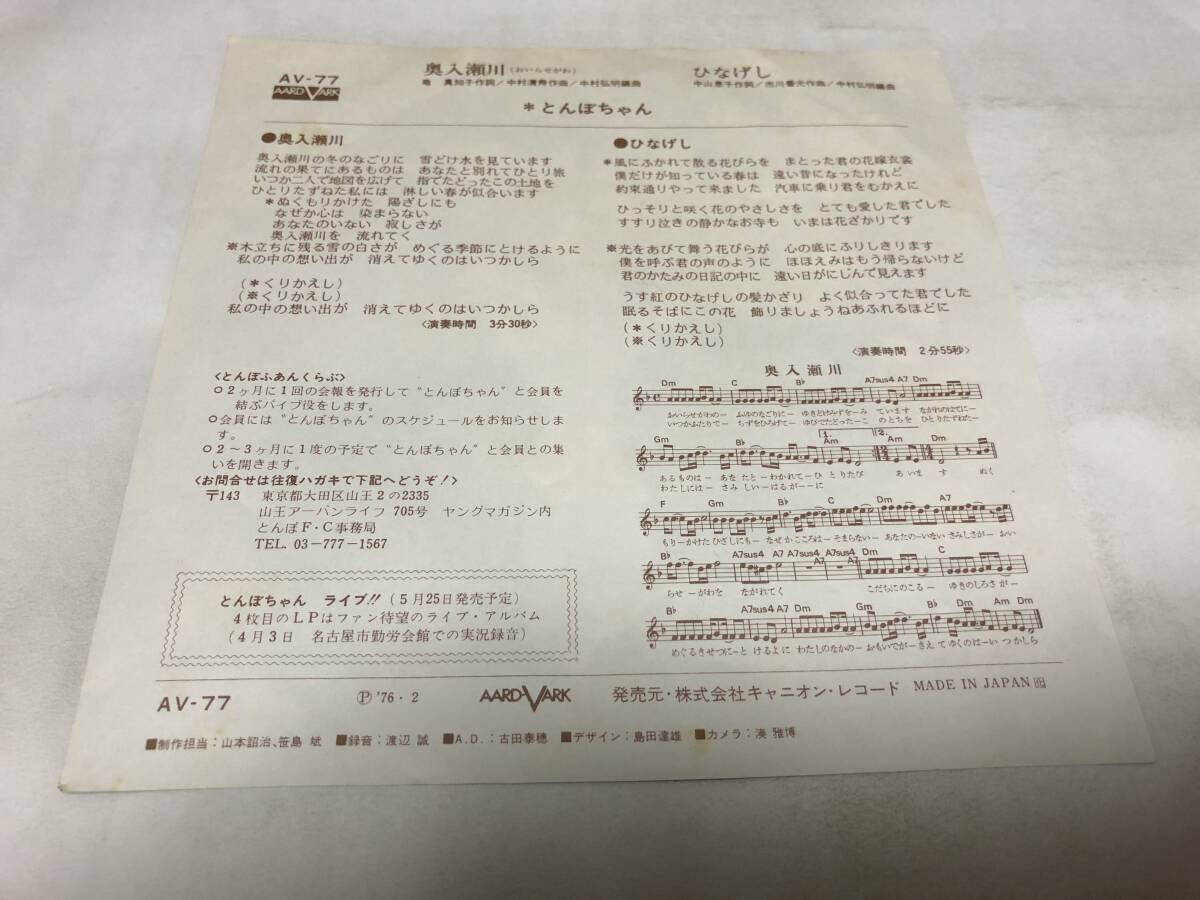 AV-77
AARDVARK
奥入瀬川(おいらせがわ)
亀 真知子作詞/中村満寿作曲/中村弘明編曲
ひなげし
中山恵子作詞/市川善光作曲/中村弘明編曲
*とんぼちゃん
●奥入瀬川
奥入瀬川の冬のなごりに 雪どけ水を見ています
流れの果てにあるものは あなたと別れてひとり旅
いつか二人で地図を広げて 指でたどったこの土地を
ひとりたずねた私には 淋しい春が似合います
*ぬくもりかけた 陽ざしにも
なぜか心は 染まらない
あなたのいない 寂しさが
奥入瀬川を 流れてく
※木立ちに残る雪の白さが めぐる季節にとけるように
私の中の想い出が 消えてゆくのはいつかしら
(*くりかえし)
(※くりかえし)
私の中の想い出が 消えてゆくのはいつかしら
〈演奏時間 3分30秒〉
●ひなげし
*風にふかれて散る花びらを まとった君の花嫁衣裳
僕だけが知っている春は 遠い昔になったけれど
約束通りやって来ました 汽車に乗り君をむかえに
ひっそりと咲く花のやさしさを とても愛した君でした
すすり泣きの静かなお寺も いまは花ざかりです
※光をあびて舞う花びらが 心の底にふりしきります
僕を呼ぶ君の声のように ほほえみはもう帰らないけど
君のかたみの日記の中に 遠い日がにじんで見えます
うす紅のひなげしの髪かざり よく似合ってた君でした
眠るそばにこの花 飾りましょうねあふれるほどに
(*くりかえし)
(※くりかえし)
〈演奏時間 2分55秒〉
〈とんぼふあんくらぶ〉
○2ヶ月に1回の会報を発行して“とんぼちゃん”と会員を
結ぶパイプ役をします。
○会員には“とんぼちゃん”のスケジュールをお知らせしま
す。
○2〜3ヶ月に1度の予定で“とんぼちゃん”と会員との集
いを開きます。
〈お問合せは往復ハガキで下記へどうぞ!〉
〒143 東京都大田区山王2の2335
山王アーバンライフ 705号 ヤングマガジン内
とんぼF・C事務局
TEL. 03-777-1567
とんぼちゃん ライブ!!(5月25日発売予定)
4枚目のLPはファン待望のライブ・アルバム
(4月3日 名古屋市勤労会館での実況録音)
奥入瀬川
Dm C B♭ A7sus4 A7 Dm
おいらせがわの— ふゆのなごりに— ゆきどけみずを—み ています ながれのはてに—
いつかふたりで— ちずをひろげて— ゆびでたどったーこ のとちを ひとりたずねたー
Gm B♭ 1. Am 2. Am Dm
あるものは— あな たと—わかれて—ひ とりたび あ いま す ぬく
わたしには— さみ しい—はるが——に
F Gm B♭ Dm Gm
もりーかけた ひざしにも— なぜ かこころは—そまらない— あなたの—いない さみしさが— おい
B♭ A7sus4 A7 A7sus4 A7 A7sus4 A7 Dm C
らせ—がわを ながれてく こだちにのこる— ゆきのしろさ が—
B♭ A7sus4 A7 Dm Gm Dm Am Dm
めぐるきせつに—と けるよに わたしのなかの—おもいでが—きえ てゆくのは—い つかしら
AV-77
Ⓟ '76・2
AARDVARK
発売元・株式会社キャニオン・レコード MADE IN JAPAN
■制作担当:山本詔治、笹島 斌 ■録音:渡辺 誠 ■A.D.:古田泰穂 ■デザイン:島田達雄 ■カメラ:湊 雅博